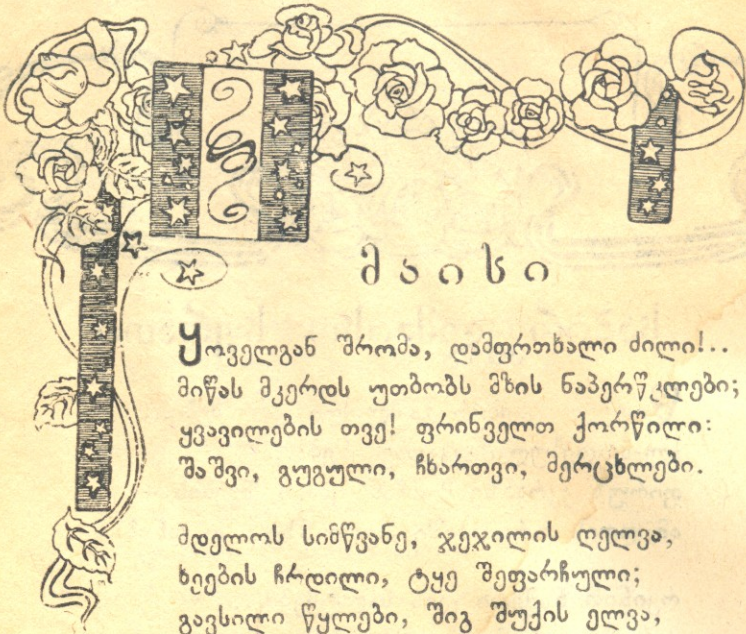 მაისი
ყოველგან შრომა, დამფრთხალი ძილი!..
მიწას მკერდს უთბობს მზის ნაპერწკლები;
ყვავილების თვე! ფრინველთ ქორწილი:
შაშვი, გუგული, ჩხართვი, მერცხლები.
მდელოს სიმწვანე, ჯეჯილის ღელვა,
ხეების ჩრდილი, ტყე შეფარჩული;
გავსილი წყლები, შიგ შუქის ელვა,